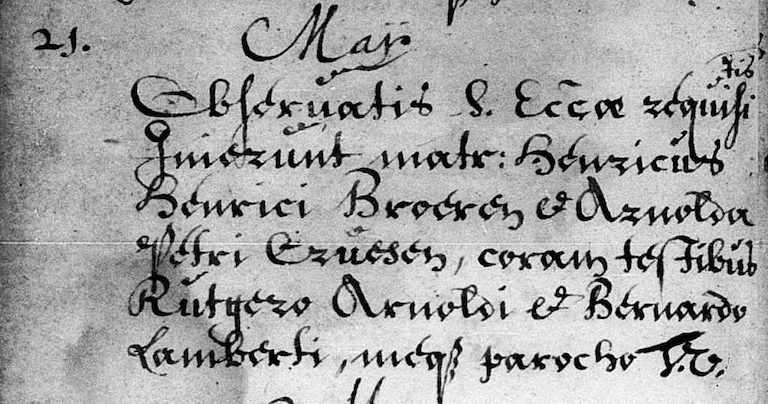 21. Maÿ
tis
Obseruatis S. Eccæ requisi
Inierunt matr: Henricus
Henrici Broeren & Arnolda
Petri Cruesen, coram testibus
Rutgero Arnoldi & Bernardo
Lamberti, meqz parocho